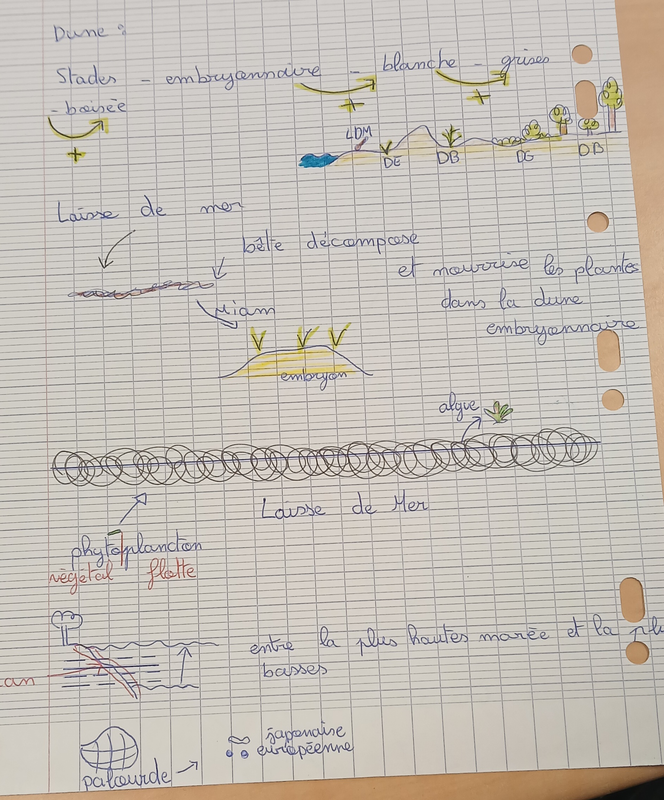 Dune :
Stades - embryonnaire - blanche - grises
- boisée
+ + +
LDM
DE DB DG DB
Laisse de mer
bête décompose
et nourrise les plantes
dans la dune
embryonnaire
Miam
embryon
algue
Laisse de Mer
phytoplancton
végétal flotte
entre la plus hautes marée et la
basses
japonaise
européenne
palourde